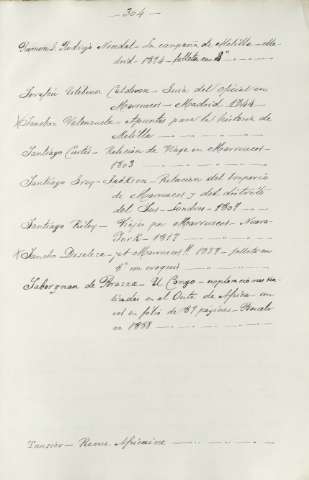 — 304 —
Ramon J. Rodrigo Nocedal — La campaña de Melilla — Ma-
drid — 1894 — folleto en 4º
Serafin Estebanez Calderon — Guia del oficial en
Marruecos — Madrid 1844
Sanchez Valenzuela — Apuntes para la historia de
Melilla
Santiago Curtis — Relación de Viage en Marruecos —
1803
Santiago Grey-Jackson — Relacion del Imperio
de Marruecos y del distrito
del Sus — Londres — 1809
Santiago Riley — Viajes por Marruecos — Nueva
York — 1817
en 4º un croquis
Saborgnan de Brazza — El Congo — exploraciones rea-
lizadas en el Oeste de Africa — un
vol en folio de páginas — Barcelo
en 1888
Tauxier — Revue Africaine